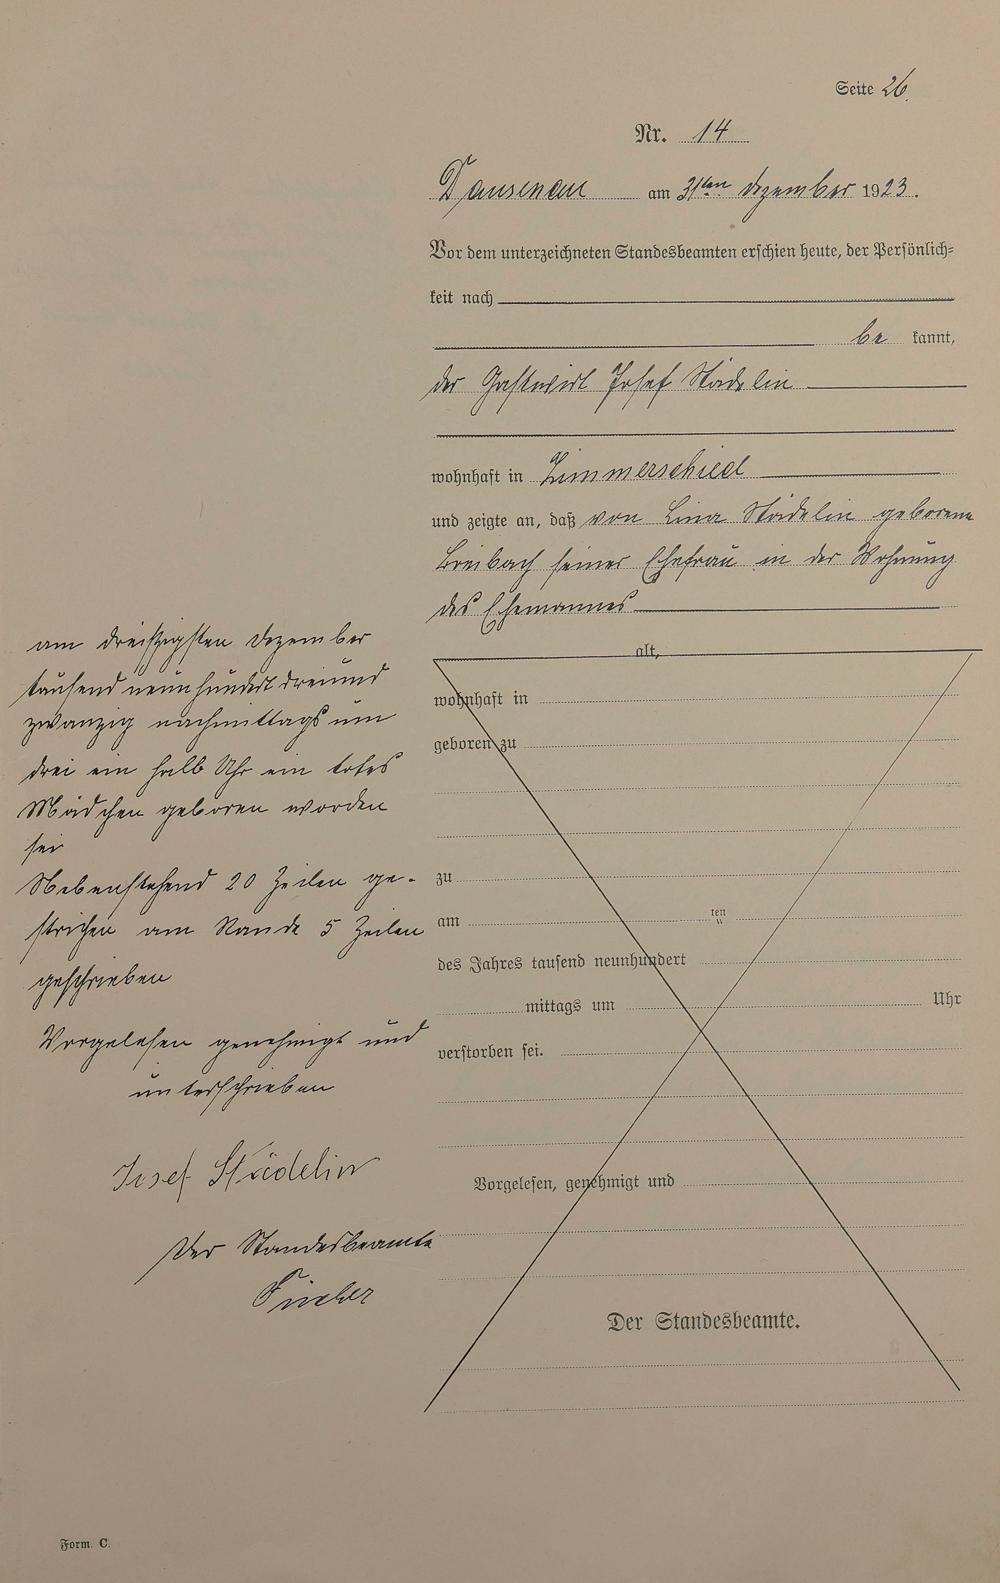 Seite 26.
Nr. 14
Dausenau am 31ten Dezember 1923.
Vor dem unterzeichneten Standesbeamten erschien heute, der Persönlich-
keit nach
be kannt,
der Gastwirt Josef Städelin
wohnhaft in Zimmerschied
und zeigte an, daß von Lina Städelin geborene
Breibach seiner Ehefrau in der Wohnung
des Ehemannes
alt,
wohnhaft in
geboren zu
zu
am ten
des Jahres tausend neunhundert
mittags um Uhr
verstorben sei.
Vorgelesen, genehmigt und
Der Standesbeamte.
am dreißigsten Dezember
tausend neunhundert dreiund
zwanzig nachmittags um
drei ein halb Uhr ein totes
Mädchen geboren worden
sei
Nebenstehend 20 Zeilen ge-
strichen am Rande 5 Zeilen
geschrieben
Vorgelesen genehmigt und
unterschrieben
Josef Städelin
Der Standesbeamte
Form. C.